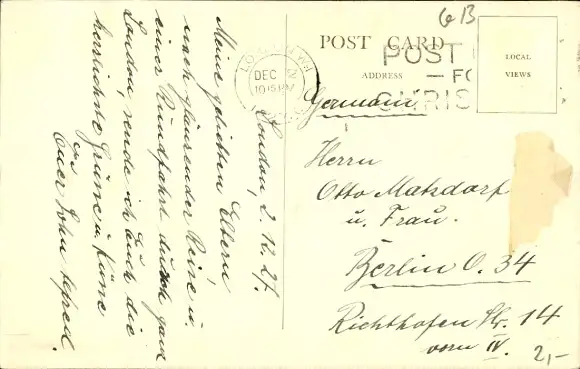 6B
POST CARD
ADDRESS
LOCAL
VIEWS
LONDON
DEC 2
1015 PM
POST
— FO
CHRIS
London, 2. 12. 27.
Meine geliebten Eltern,
nach glänzender Reise u.
einer Rundfahrt durch ganz
London, sende ich Euch die
herzlichsten Grüße u. Küsse
Euer Sohn
Germany
Herrn
Otto Matzdorf
u. Frau.
Berlin O. 34
Richthofen Str. 14
vorn IV.
2,-